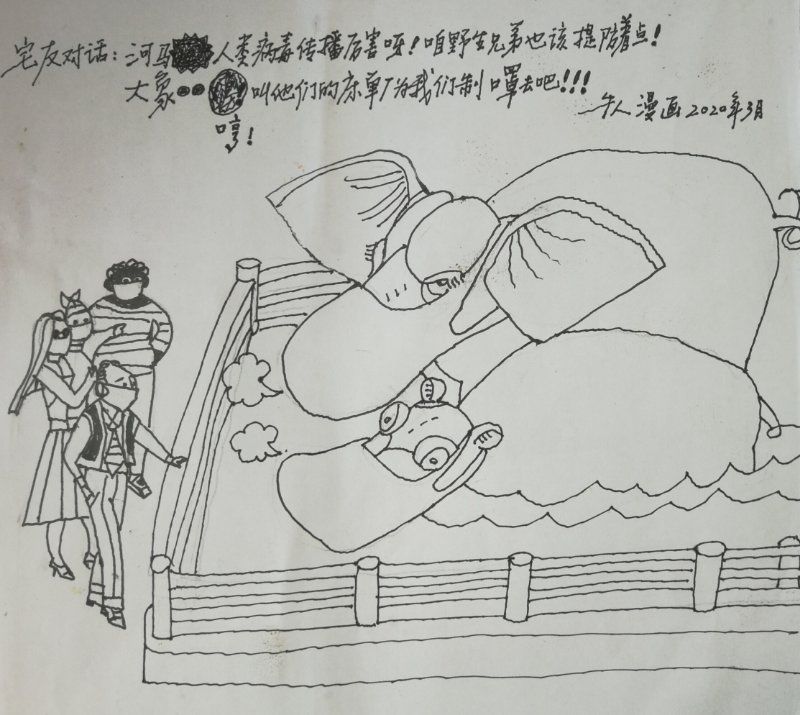 宅友对话：河马 人类病毒传播厉害呀！咱野生兄弟也该提防着点！
大象 叫他们的床单厂为我们制口罩去吧!!!
哼！
牛人漫画2020年3月